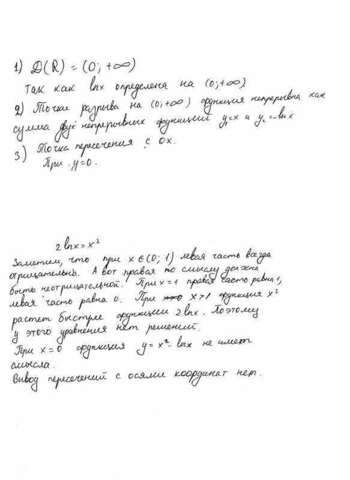 1) D(R) = (0; +∞)
Так как lnx определена на (0; +∞)
2) Точки разрыва на (0; +∞) функция непрерывна как
сумма двух непрерывных функций y₁=x и y₂=-lnx
3) Точка пересечения с OX.
При y=0.
2 lnx = x²
Заметим, что при x∈(0; 1) левая часть всегда
отрицательна. А вот правая по смыслу должна
быть неотрицательной. При x=1 правая часть равна 1,
левая часть равна 0. При x>1 функция x²
растет быстрее функции 2 lnx. Поэтому
у этого уравнения нет решений.
При x=0 функция y = x² - lnx не имеет
смысла.
Вывод пересечений с осями координат нет.